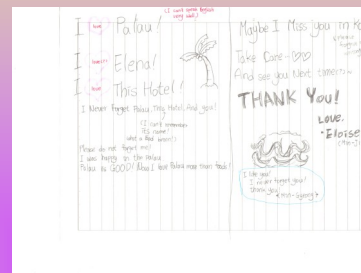 (I can't speak English very well!)
I love Palau!
I love Elena!
I love This Hotel!
I Never Forget Palau, This Hotel, And you!
(I can't remember
its name!
Please do not forget me!
I was happy in the palau
Palau is GOOD! Now I love Palau more than foods!
Maybe I Miss you in
Take Care~
And see you Next time!
THANK YOU!
Love.
Eloise
I like you!
I never forget you!
thank you!